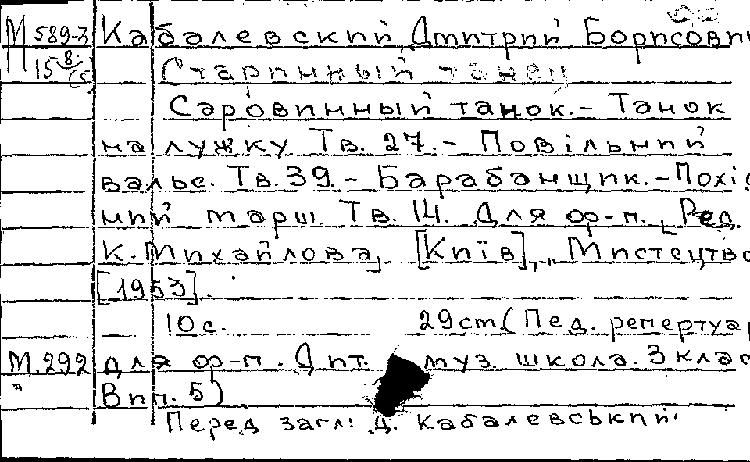 М 589-3 Кабалевский, Дмитрий Борисови
15 8/(5) Старинный танец
Старовинный танок.- Танок
на лужку. Тв. 27.- Повільний
вальс. Тв. 39.- Барабанщик.-Похід
ний марш. Тв. 14. Для ф-п. [Ред.
К. Михайлова]. [Київ], „Мистецтво
[1953].
10 с. 29 cm. (Пед. репертуар
М.292 для ф-п. Дит. муз. школа. 3 клас
" Вип. 5)
Перед загл: Д. Кабалевський.